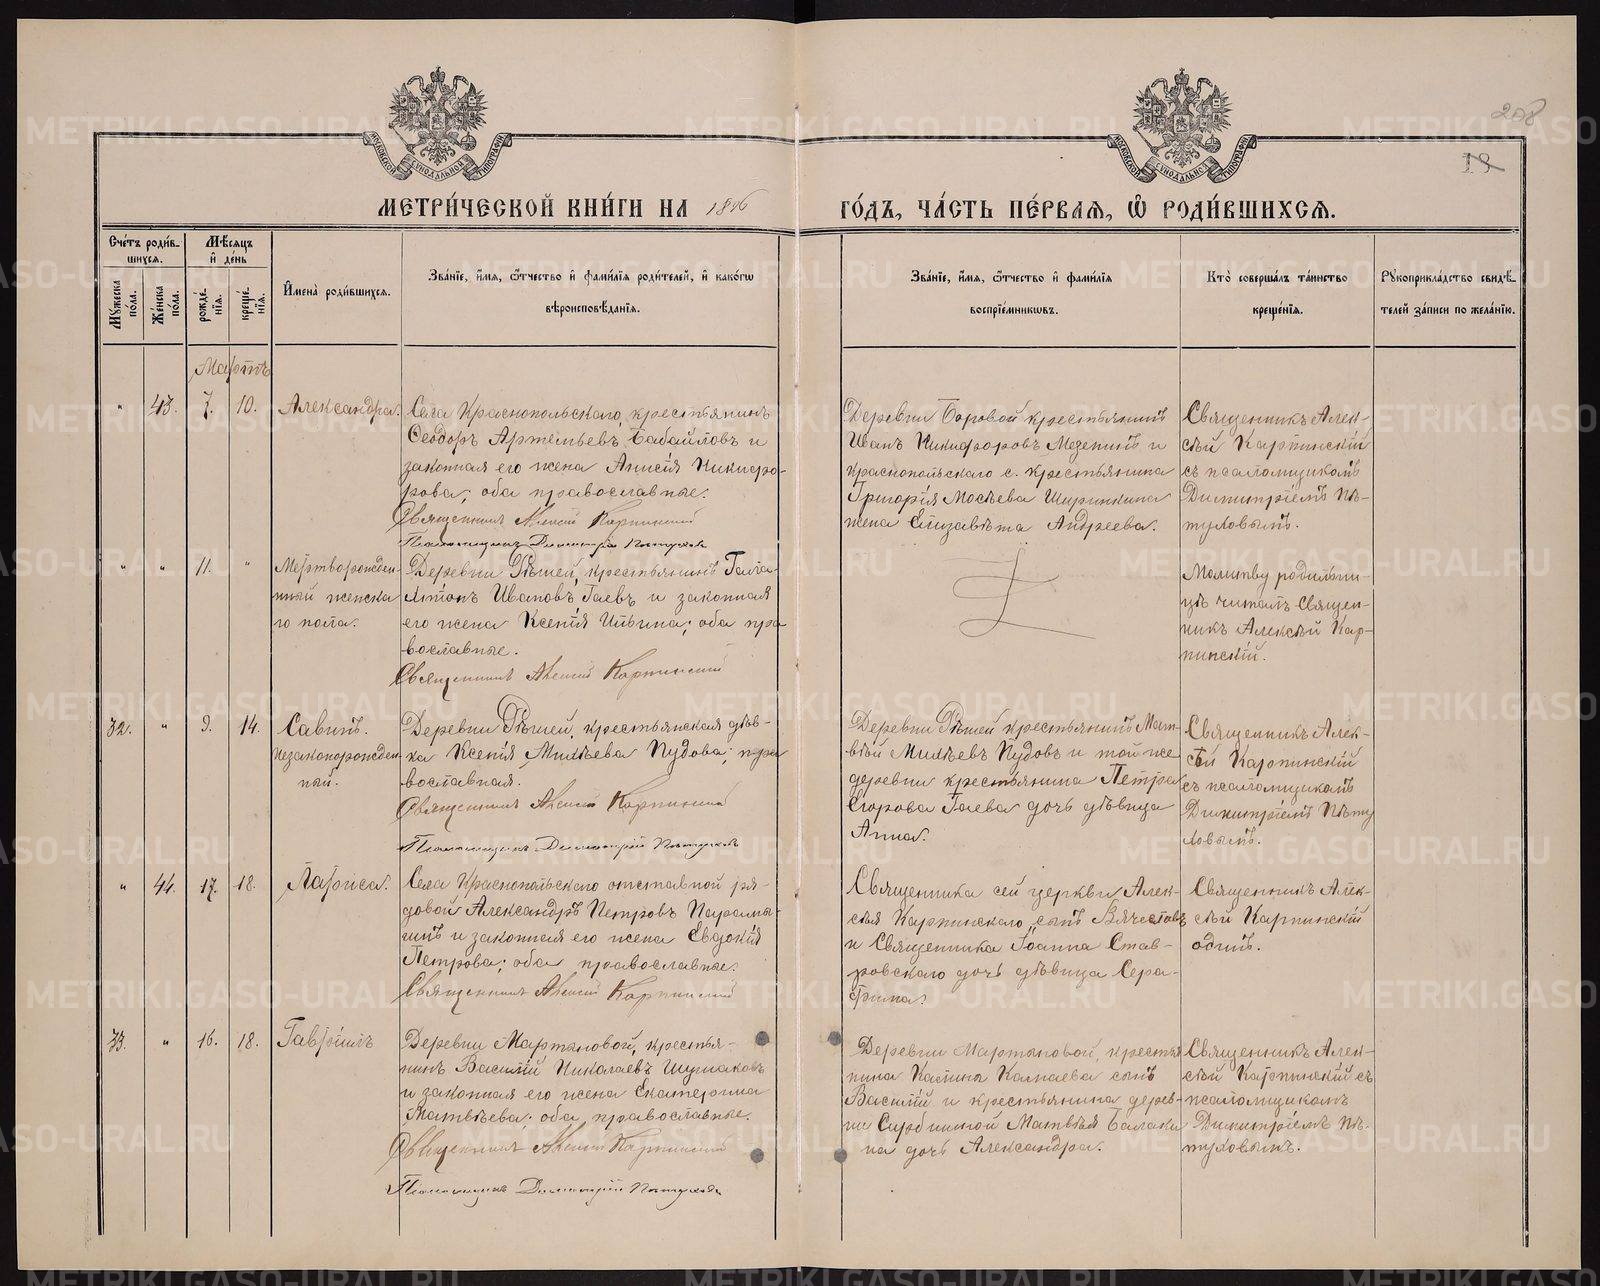 208
18
МОСКОВСКОЙ СУНОДАЛЬНОЙ ТИПОГРАФІИ
МОСКОВСКОЙ СУНОДАЛЬНОЙ ТИПОГРАФІИ
МЕТРИ́ЧЕСКОЙ КНИ́ГИ НА
ГО́ДЪ, ЧА́СТЬ ПЕ́РВАЯ, Ѡ҆ РОДИ́ВШИХСЯ.
Сче́тъ роди́в-
шихся.
Мѣ́сяцъ
и҆ де́нь
Мꙋ́жеска по́ла.
Же́нска по́ла.
рожде́-нїя.
креще́-нїя.
И҆мена̀ роди́вшихся.
Зва́нїе, и҆́мя, ѻ҆́тчество и҆ фами́лїя роди́телей, и҆ како́гѡ
вѣроисповѣ́данїя.
Зва́нїе, и҆́мя, ѻ҆́тчество и҆ фами́лїя
воспрїе́мникѡвъ.
Кто̀ соверша́лъ та́инство
креще́нїя.
Рꙋкоприкла́дство свидѣ́-
телей за́писи по жела́нїю.
Мартъ
" 43. 7. 10. Александра.
Села Краснопольскаго, крестьянинъ
Ѳеодоръ Артемьевъ Бабайловъ и
законная его жена Анисія Никифо-
рова; оба православные.
Священникъ Алексій Карпинскій
Псаломщикъ Димитрій Пѣтуховъ
Деревни Боровой крестьянинъ
Иванъ Никифоровъ Мезенинъ и
Краснопольскаго с. крестьянина
Григорія Мосѣева Ширинкина
жена Елизавѣта Андреева.
Священникъ Алек-
сѣй Карпинскій
съ псаломщикомъ
Димитріемъ Пѣ-
туховымъ.
" " 11. "
Мертворожден-
ный женска
го пола.
Деревни Рѣшей, крестьянинъ
Антонъ Ивановъ Гаевъ и законная
его жена Ксенія Ильина; оба пра
вославные.
Священникъ Алексій Карпинскій
Молитву родильни-
цѣ читалъ Священ-
никъ Алексѣй Кар-
пинскій.
32. " 9. 14. Савинъ.
Незаконорожден-
ный.
Деревни Рѣшей, крестьянская дѣв-
ка Ксенія Михѣева Пудова; пра
вославная.
Священникъ Алексій Карпинскій
Псаломщикъ Димитрій Пѣтуховъ
Деревни Рѣшей крестьянинъ Мат-
вѣй Михѣевъ Пудовъ и той же
деревни крестьянина Петра
Егорова Гаева дочь дѣвица
Анна.
Священникъ Алек-
сѣй Карпинскій
съ псаломщикомъ
Димитріемъ Пѣту
ховымъ.
" 44. 17. 18. Лариса.
Села Краснопольскаго отставной ря-
довой Александръ Петровъ
и законная его жена Евдокія
Петрова; оба православные.
Священникъ Алексій Карпинскій
Священника сей церкви Алек-
сѣя Карпинскаго сынъ Вячеславъ
и Священника Іоанна Став-
ровскаго дочь дѣвица Сера-
фима.
Священникъ Алек-
сѣй Карпинскій
одинъ.
33. " 16. 18. Гавріилъ
Деревни Мартяновой, крестья-
нинъ Василій Николаевъ Шумаковъ
и законная его жена Екатерина
Матвѣева; оба православные.
Священникъ Алексій Карпинскій
Псаломщикъ Димитрій Пѣтуховъ
Деревни Мартяновой, крестья
нина Калина Калнаева сынъ
Василій и крестьянина дерев-
ни Матвѣя Балаки
на дочь Александра.
Священникъ Алек-
сѣй Карпинскій съ
псаломщикомъ
Димитріемъ Пѣ-
туховымъ.
METRIKI.GASO-URAL.RU